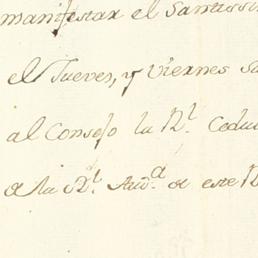 manifestar el Santissi
el Jueves, y Viernes S
al Consejo la Rl. Cedu
a la Rl. Auda. de este R